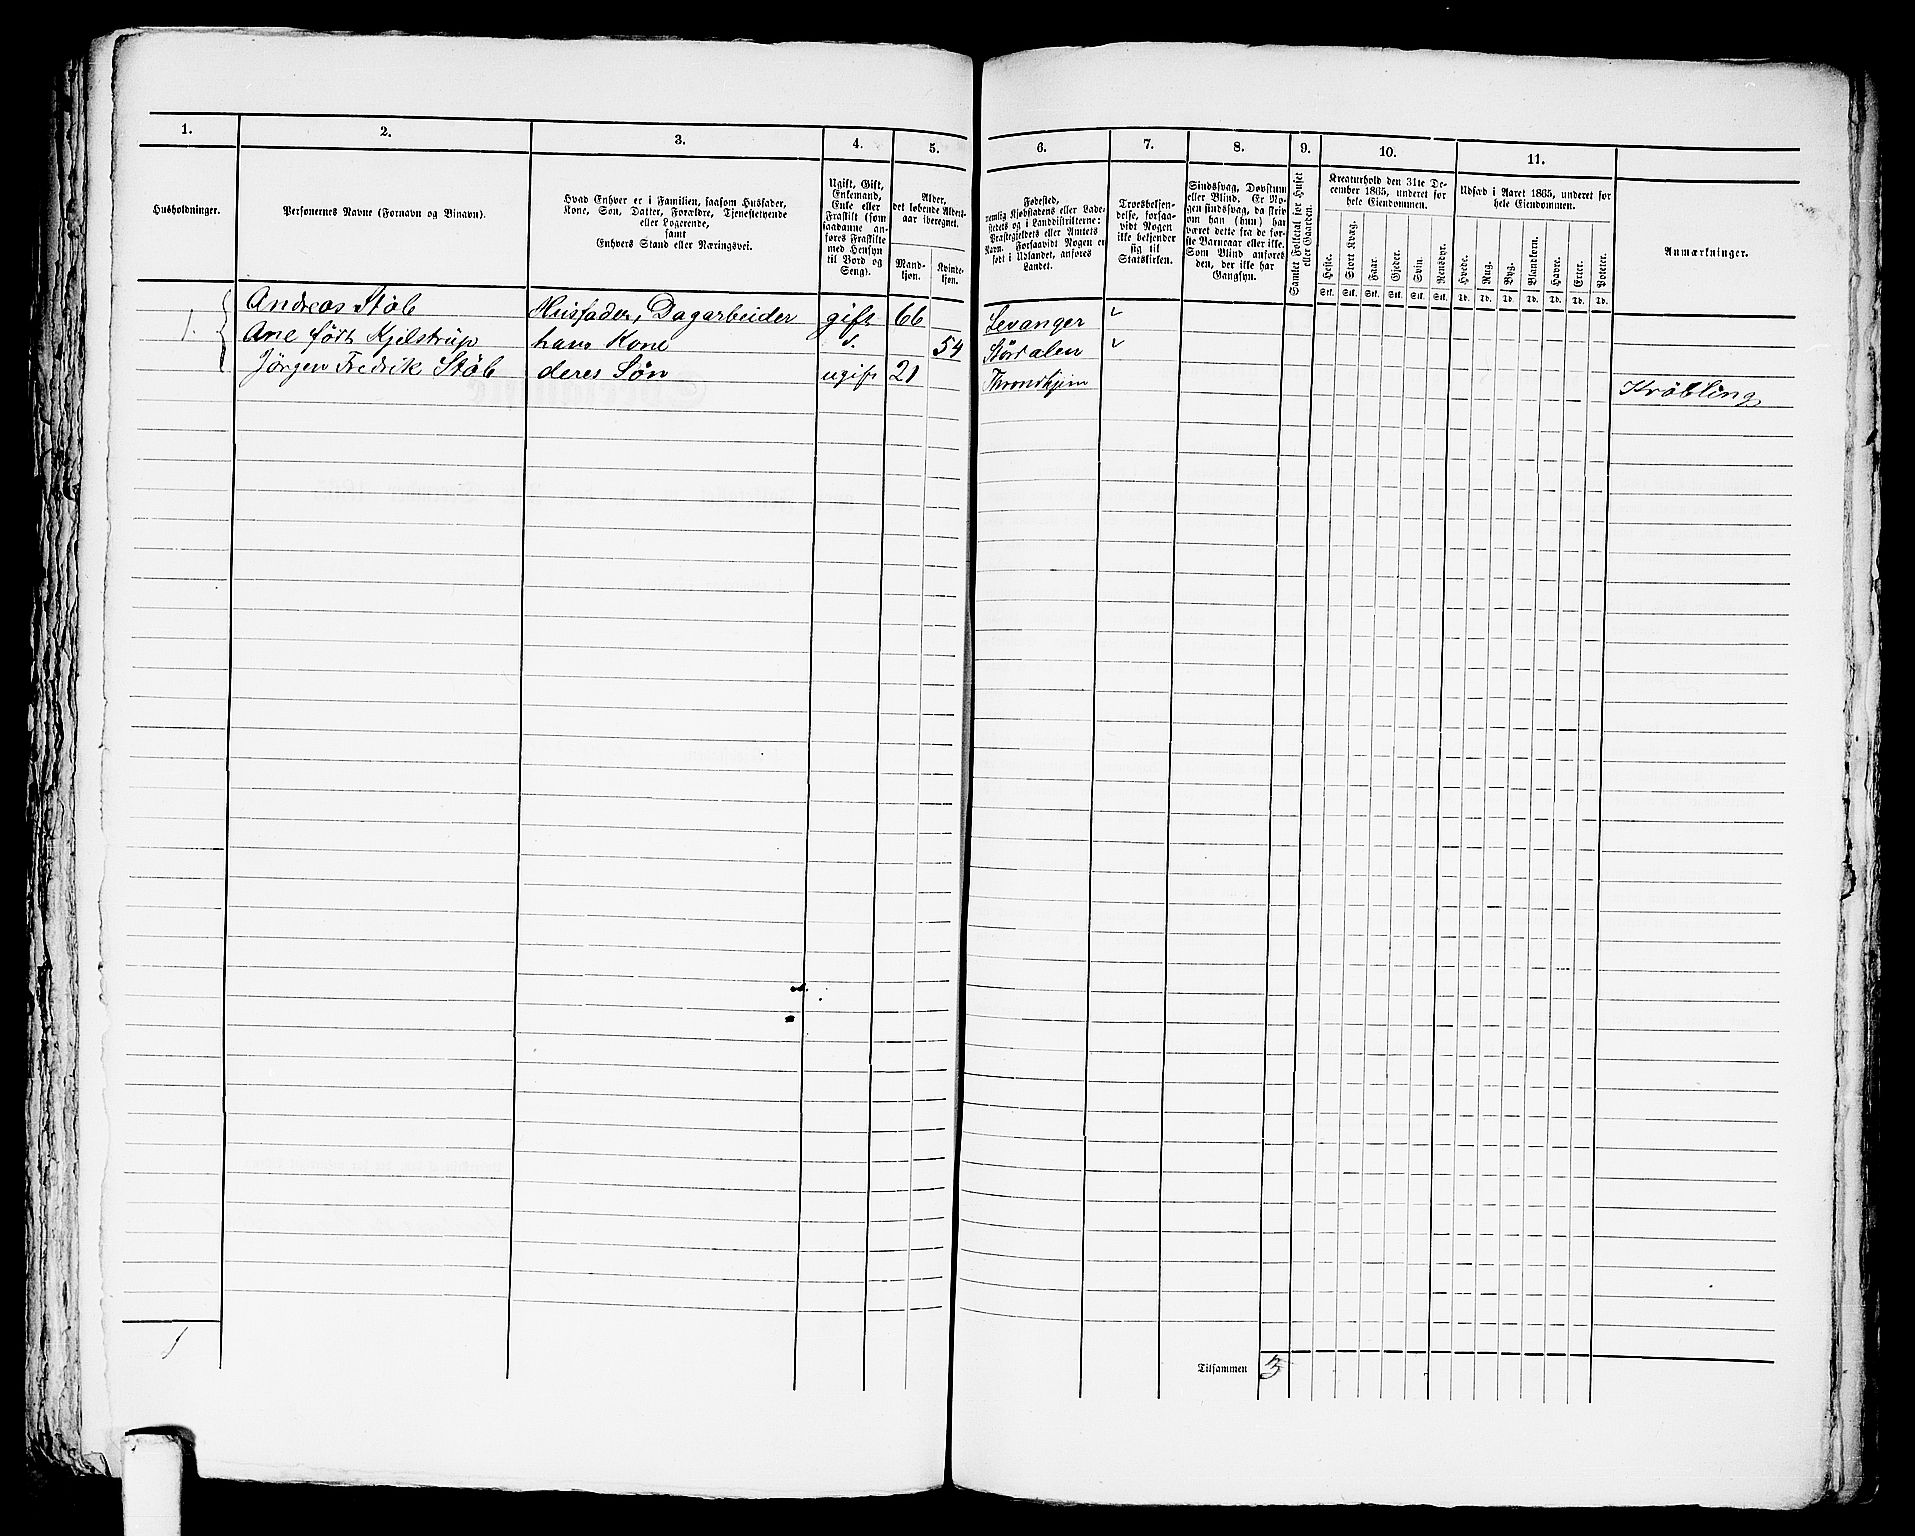 1. 2. 3. 4. 5. 6. 7. 8. 9. 10. 11.
Husholdninger.
Personernes Navne (Fornavn og Binavn).
Hvad Enhver er i Familien, saasom Husfader,
Kone, Søn, Datter, Forældre, Tjenestetyende
eller Logerende,
samt
Enhvers Stand eller Næringsvei.
Ugift, Gift,
Enkemand,
Enke eller
Fraskilt (som
saadanne an-
føres Fraskilte
med Hensyn
til Bord og
Seng).
Alder,
det løbende Alders-
aar iberegnet.
Mand-
kjøn.
Kvinde-
kjøn.
Fødested,
nemlig Kjøbstadens eller Lade-
stedets og i Landdistrikterne:
Præstegjeldets eller Amtets
Navn. Forsaavidt Nogen er
født i Udlandet, anføres
Landet.
Troesbekjen-
delse, forsaa-
vidt Nogen
ikke bekjender
sig til
Statskirken.
Sindssvag, Døvstum
eller Blind. Er No-
gen sindssvag, da skriv
om han (hun) har
været dette fra de før-
ste Barneaar eller ikke.
Som Blind anføres
den, der ikke har
Gangsyn.
Samlet Folketal for Huset
eller Gaarden.
Kreaturhold den 31te De-
cember 1865, underet for
hele Eiendommen.
Heste. Stort Kvæg. Faar. Gjeder. Svin. Rensdyr.
Stk. Stk. Stk. Stk. Stk. Stk.
Udsæd i Aaret 1865, underet for
hele Eiendommen.
Hvede. Rug. Byg. Blandkorn. Havre. Erter. Poteter.
Td. Td. Td. Td. Td. Td. Td.
Anmærkninger.
1. Andreas Støb Husfader, Dagarbeider gift 66 Levanger
Ane født Kjelstrup hans Kone d. 54 Størdalen
Jørgen Fredrik Støb deres Søn ugift 21 Throndhjem Krøbling
1
Tilsammen 3